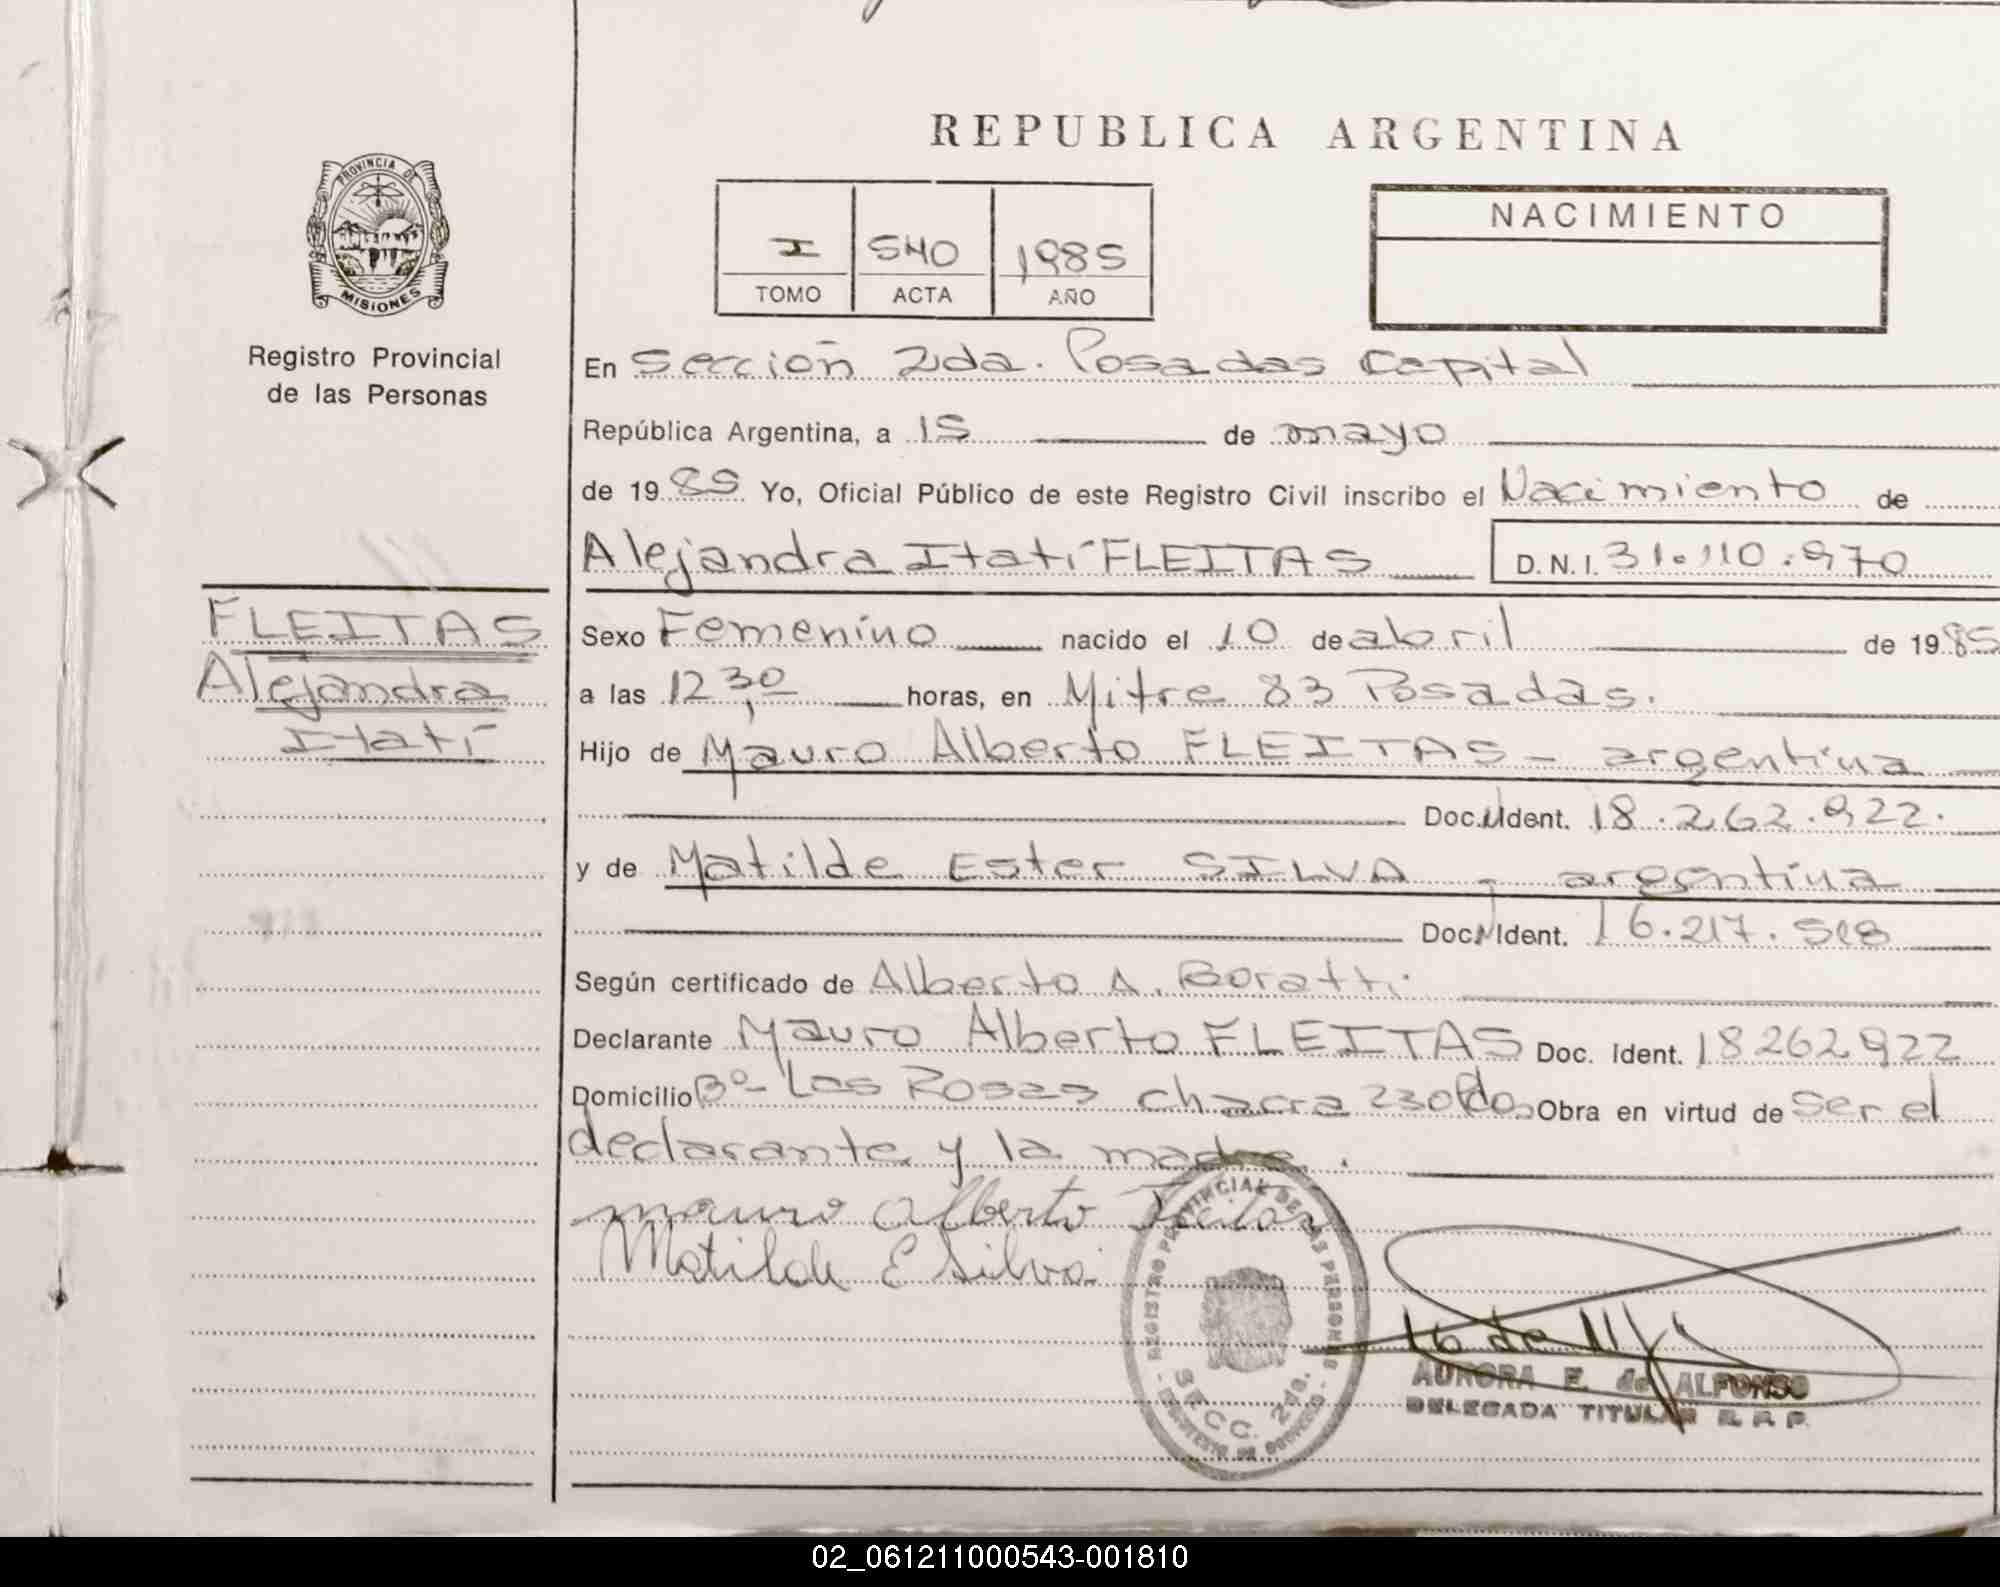 REPUBLICA ARGENTINA
PROVINCIA DE MISIONES
Registro Provincial
de las Personas
I 540 1985
TOMO ACTA AÑO
NACIMIENTO
En Sección 2da. Posadas Capital
República Argentina, a 15 de mayo
de 1985 Yo, Oficial Público de este Registro Civil inscribo el Nacimiento de
Alejandra Itatí FLEITAS D.N.I. 31.110.970
FLEITAS
Alejandra
Itatí
Sexo Femenino nacido el 10 de abril de 1985
a las 12,30 horas, en Mitre 83 Posadas.
Hijo de Mauro Alberto FLEITAS - argentina
Doc. Ident. 18.262.922.
y de Matilde Ester SILVA - argentina
Doc. Ident. 16.217.
Según certificado de Alberto A. Boratti
Declarante Mauro Alberto FLEITAS Doc. Ident. 18262922
Domicilio Bº Las Rosas chacra 230 Pdas. Obra en virtud de ser el
declarante y la madre.
mauro alberto Fleitas
Matilde E Silva
REGISTRO PROVINCIAL DE LAS PERSONAS
SECC. 2da.
AURORA E. de ALFONSO
DELEGADA TITULAR R. P. P.
02_061211000543-001810